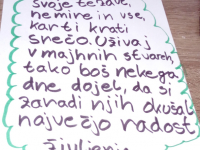 svoje težave,
nemire in vse,
kar ti krati
srečo. Uživaj
v majhnih stvareh
tako boš nekega
dne dojel, da si
zaradi njih okušal
največjo radost
življenja